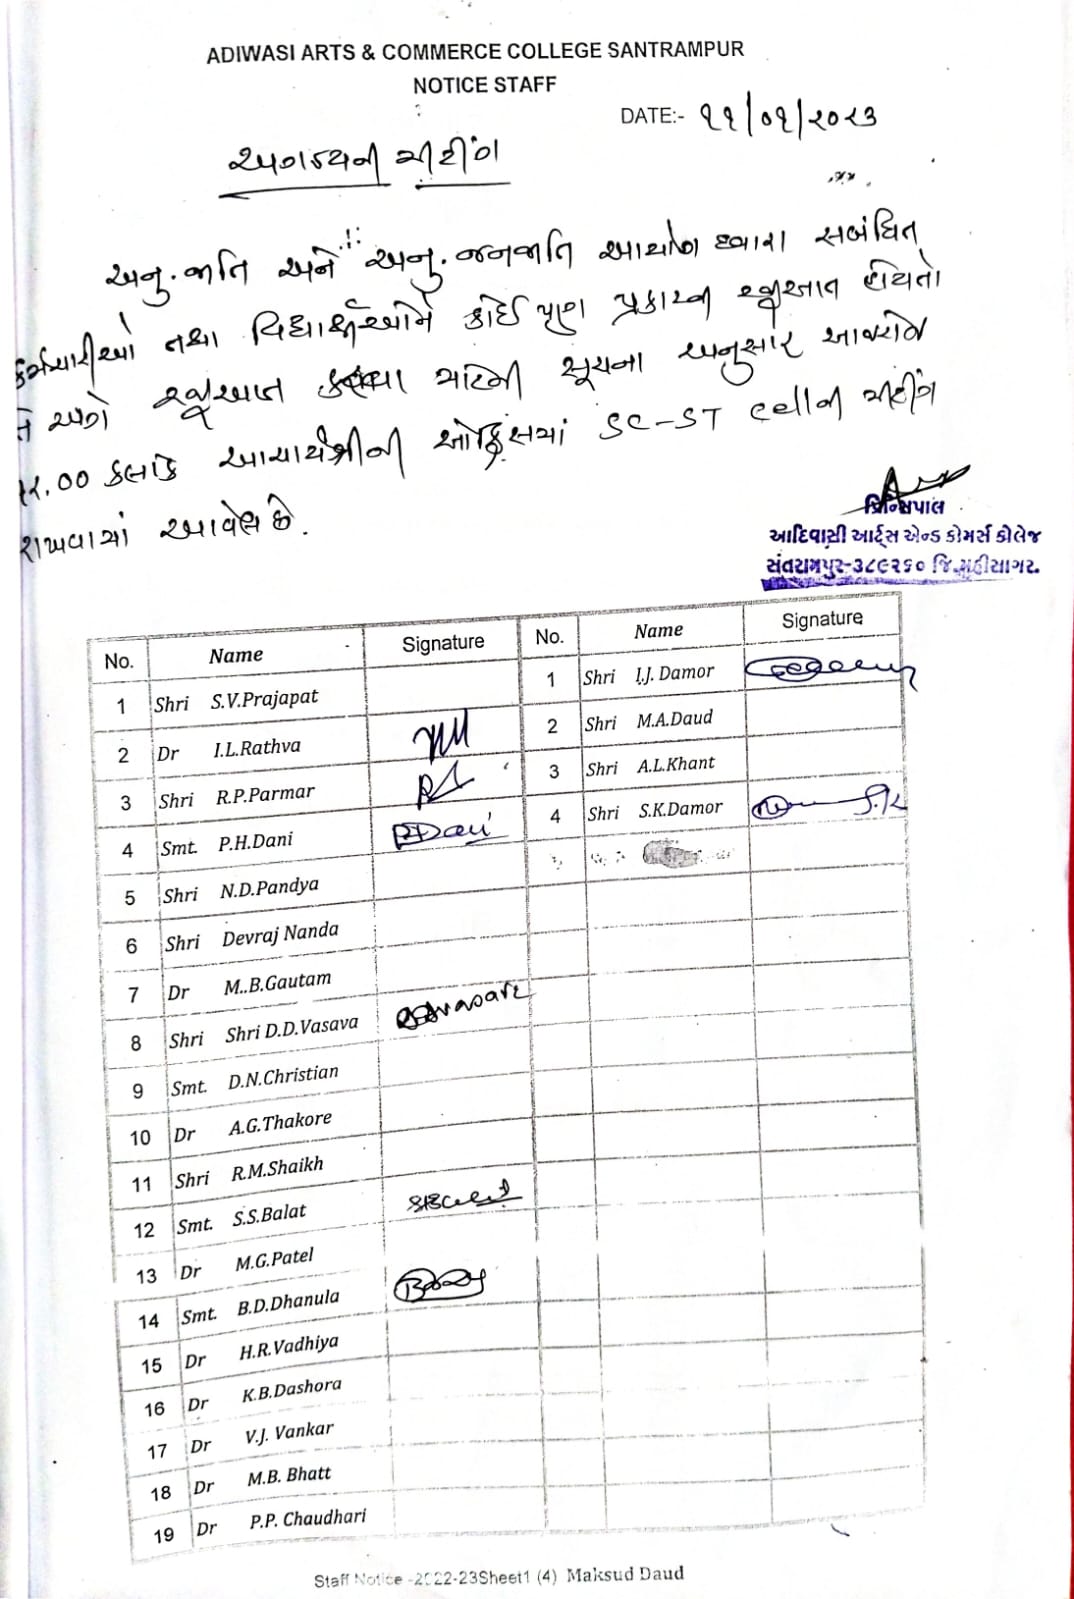 ADIWASI ARTS & COMMERCE COLLEGE SANTRAMPUR
NOTICE STAFF
DATE:- ૧૧/૦૧/૨૦૨૩
અગત્યની મીટીંગ
અનુ.જાતિ અને અનુ.જનજાતિ આયોગ ધ્વારા સબંધિત
કર્મચારીઓ તથા વિદ્યાર્થીઓને કોઈ પણ પ્રકારની રજૂઆત હોય તો
તે અંગે રજૂઆત કરવા માટેની સૂચના અનુસાર આજરોજ
૧૨.૦૦ કલાકે આચાર્યશ્રીની ઓફિસમાં SC-ST cellની મીટીંગ
રાખવામાં આવેલ છે.
પ્રિન્સિપાલ
આદિવાસી આર્ટ્સ એન્ડ કોમર્સ કોલેજ
સંતરામપુર-૩૮૯૨૬૦ જિ.મહીસાગર.
No. Name Signature No. Name Signature
1 Shri S.V.Prajapat 1 Shri I.J. Damor
2 Dr I.L.Rathva 2 Shri M.A.Daud
3 Shri R.P.Parmar 3 Shri A.L.Khant
4 Smt. P.H.Dani PHDani 4 Shri S.K.Damor S.K
5 Shri N.D.Pandya
6 Shri Devraj Nanda
7 Dr M..B.Gautam
8 Shri Shri D.D.Vasava
9 Smt. D.N.Christian
10 Dr A.G.Thakore
11 Shri R.M.Shaikh
12 Smt. S.S.Balat
13 Dr M.G.Patel
14 Smt. B.D.Dhanula
15 Dr H.R.Vadhiya
16 Dr K.B.Dashora
17 Dr V.J. Vankar
18 Dr M.B. Bhatt
19 Dr P.P. Chaudhari
Staff Notice -2022-23Sheet1 (4) Maksud Daud